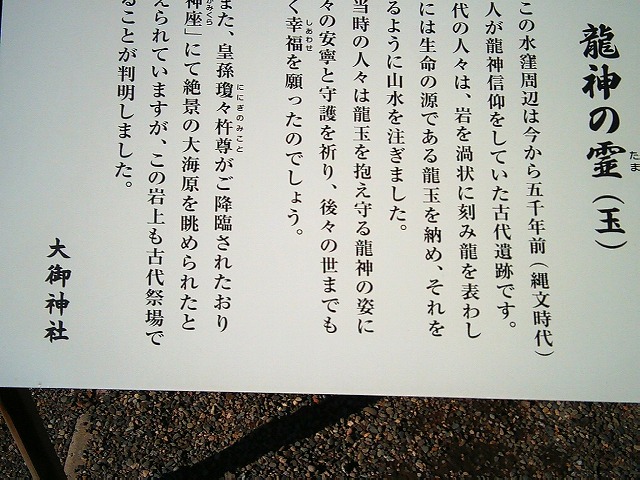 龍神の霊（玉）
たま
この水窪周辺は今から五千年前（縄文時代）
人が龍神信仰をしていた古代遺跡です。
代の人々は、岩を渦状に刻み龍を表わし
には生命の源である龍玉を納め、それを
るように山水を注ぎました。
当時の人々は龍玉を抱え守る龍神の姿に
々の安寧と守護を祈り、後々の世までも
く幸福を願ったのでしょう。
しあわせ
また、皇孫瓊々杵尊がご降臨されたおり
ににぎのみこと
神座」にて絶景の大海原を眺められたと
みくら
えられていますが、この岩上も古代祭場で
ることが判明しました。
大御神社